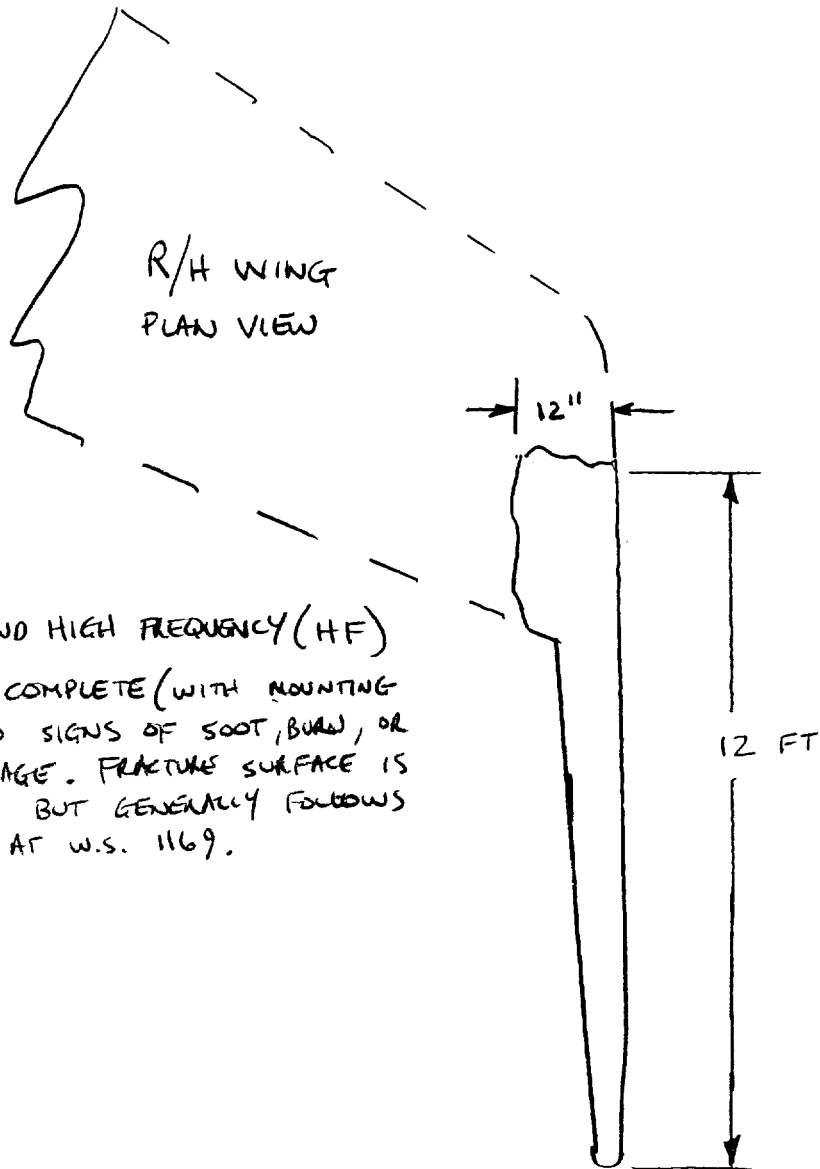 R/H WING
PLAN VIEW
12"
ND HIGH FREQUENCY (HF)
COMPLETE (WITH MOUNTING
SIGNS OF SOOT, BURN, OR
AGE. FRACTURE SURFACE IS
BUT GENERALLY FOLLOWS
AT W.S. 1169.
12 FT